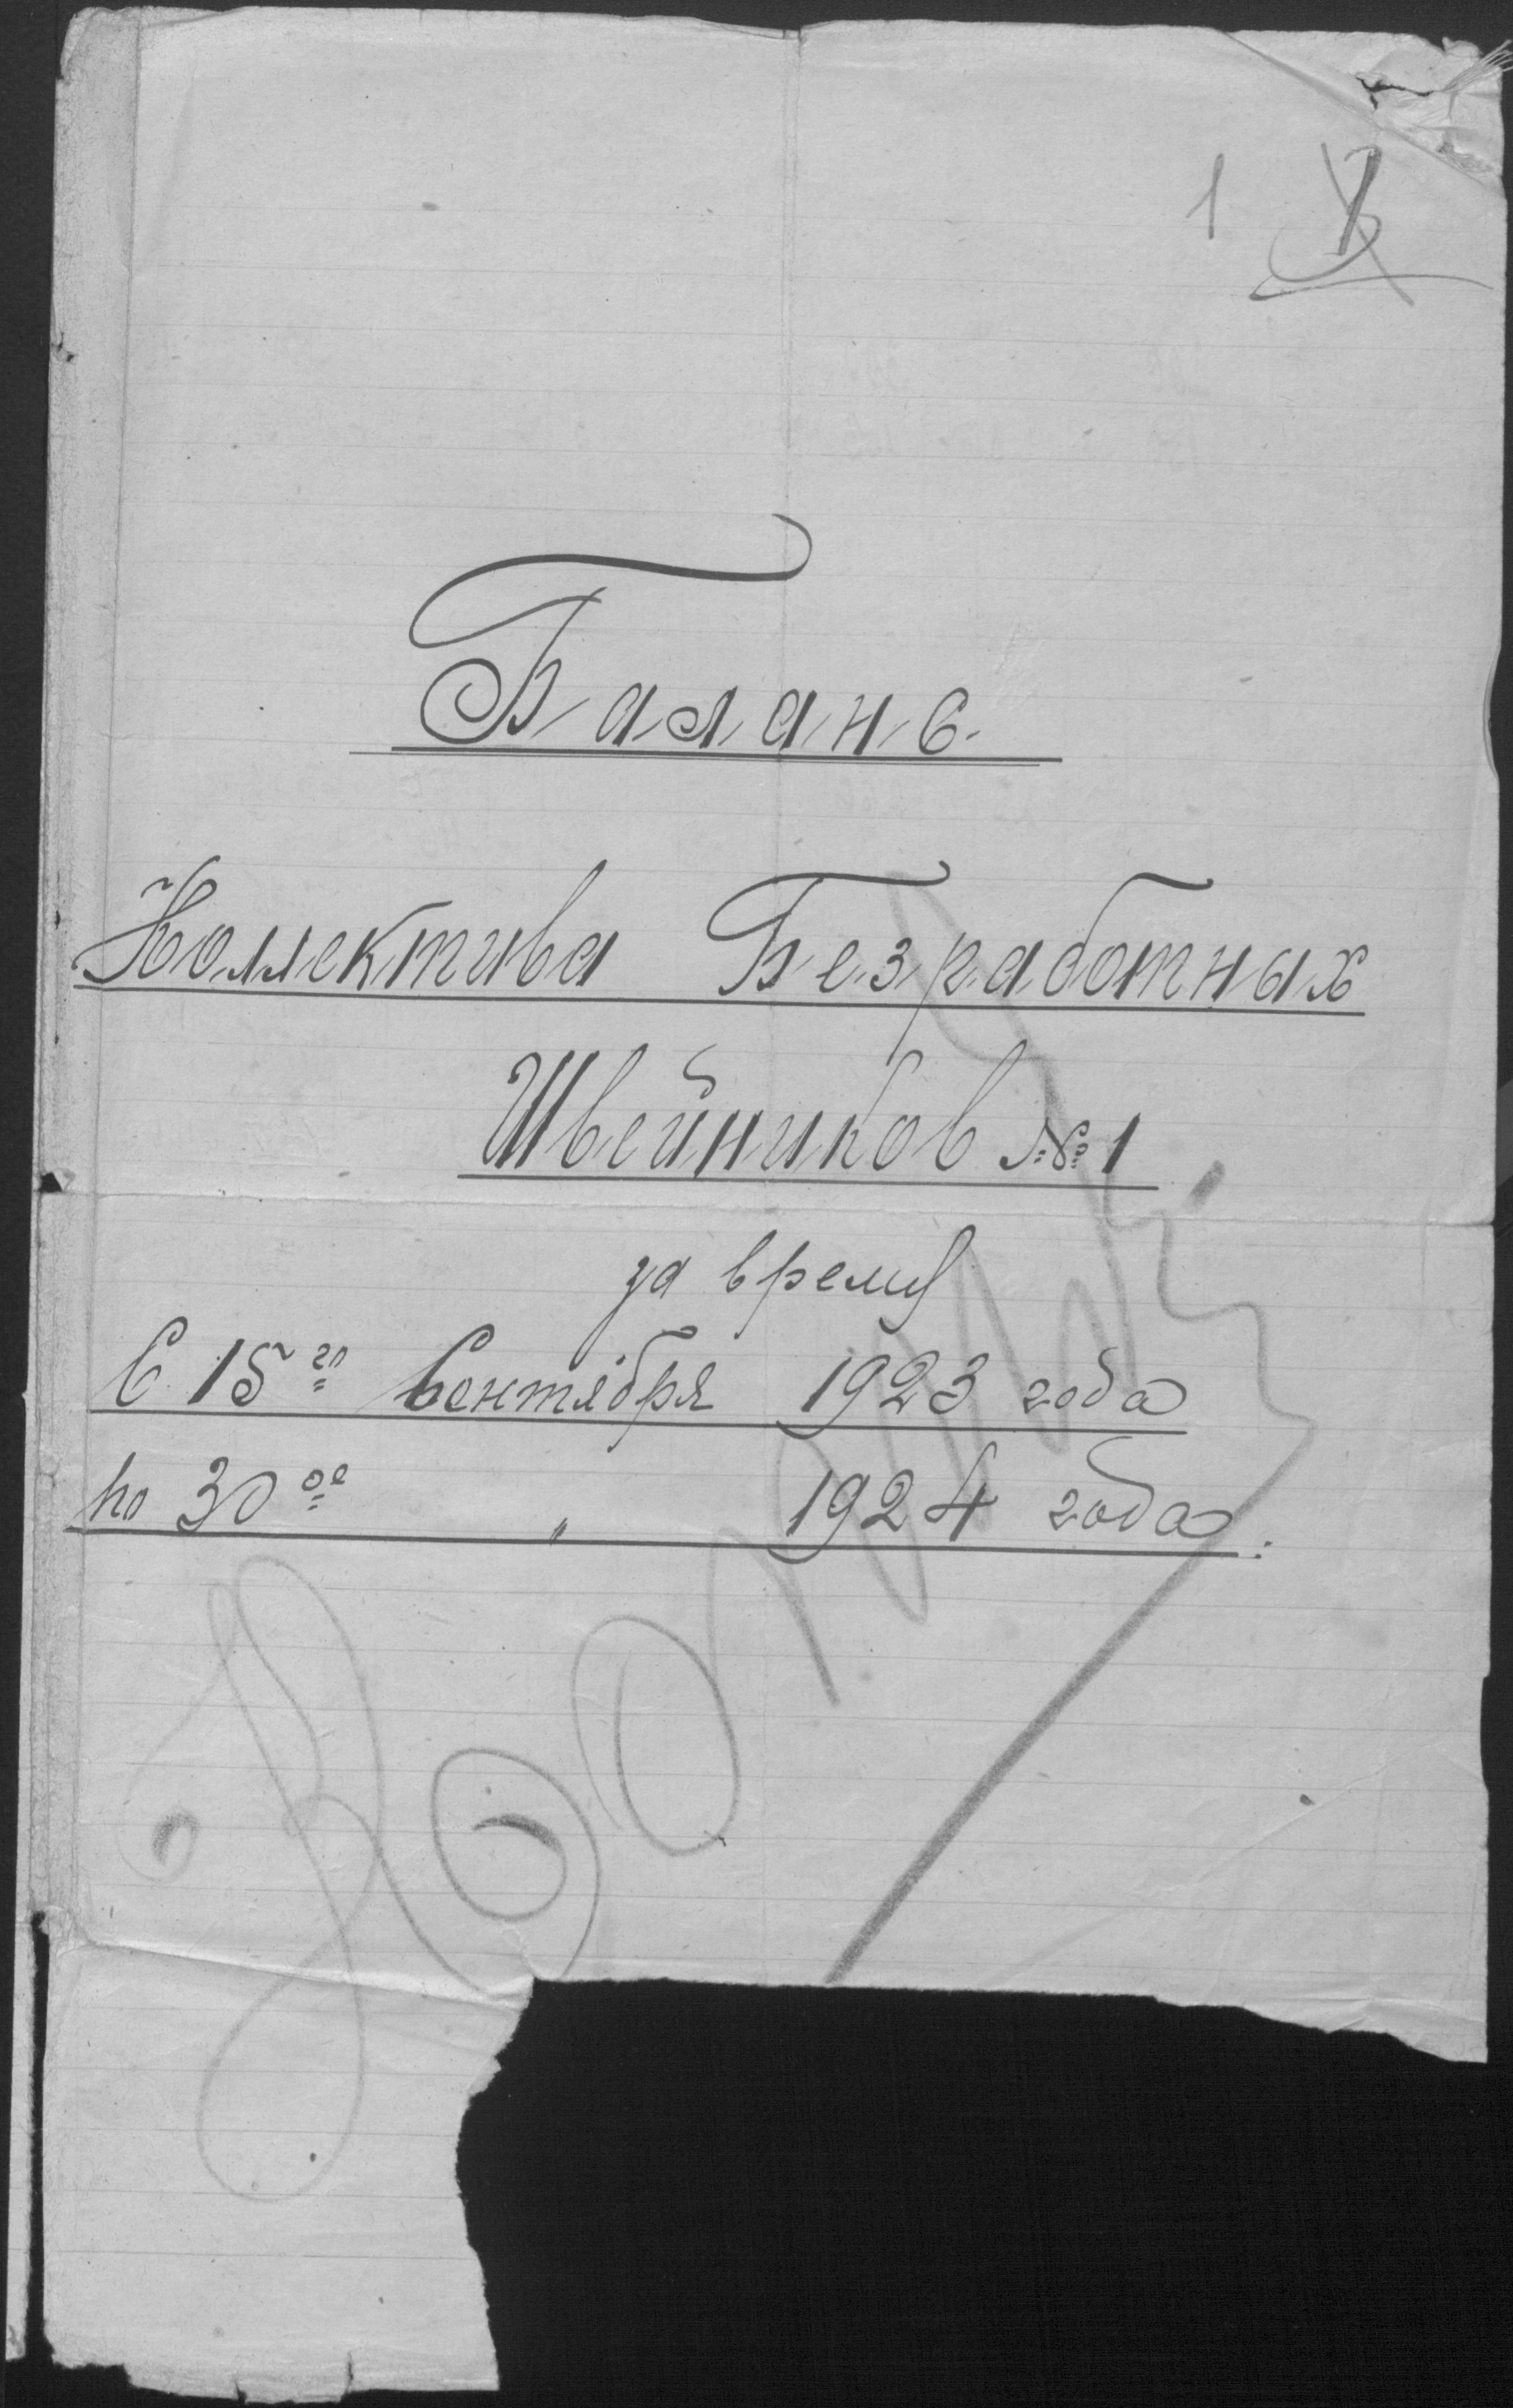 1
Баланс.
Коллектива Безработных
Швейников № 1
за время
С 15го Сентября 1923 года
по 30ое " 1924 года.